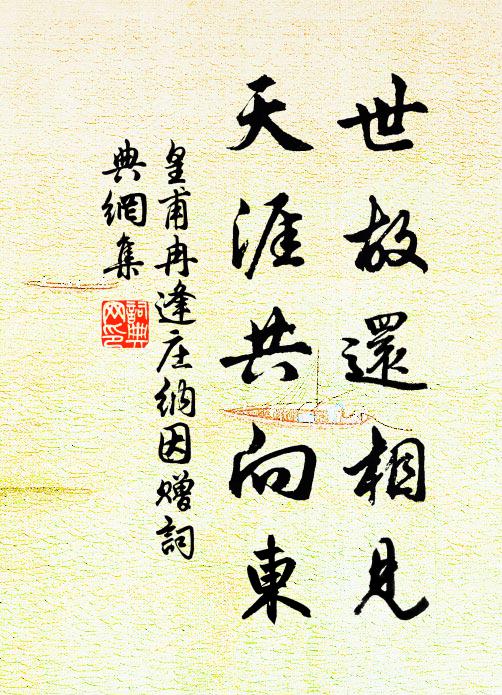 世故還相見
天涯共向東
皇甫冉逢庄纳因赠詞
典網集
詞典
网印